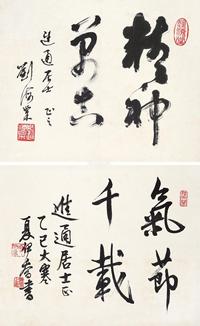 精神
萬古
進通居士正之
劉海粟
氣節
千載
進通居士正
乙巳大寒
夏伊喬書